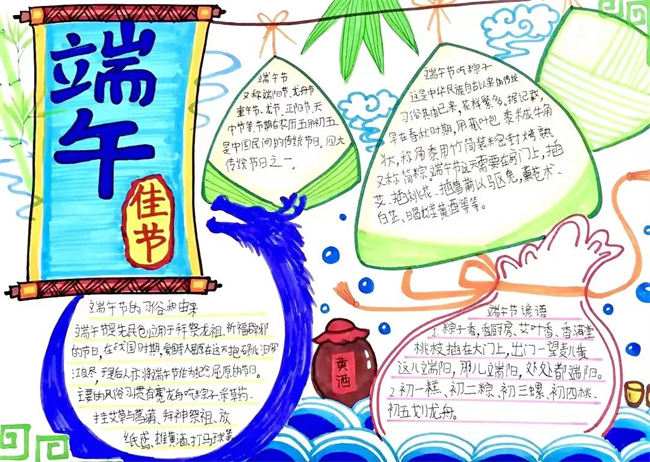 端午
佳节
端午节
又称端阳节、龙舟节
重午节、龙节、正阳节、天
中节等,节期在农历五月初五,
是中国民间的传统节日,四大
传统节日之一。
端午节吃粽子
这是中华民族自古以来的传统
习俗,其由已来,花样繁多。据记载,
早在春秋时期,用菰叶包 黍米成牛角
状,称角黍用竹筒装米密封烤熟
又称筒粽。端午节这天需要在房门上,插
艾、插桃花、插菖蒲以马区鬼,熏苍术、
白芷、喝雄黄酒等等。
端午节的习俗和由来
端午节是先民创立用于拜祭龙祖、祈福辟邪
的节日,在战国时期,
江自尽,于是后人亦将端午节作为纪念屈原的节日。
主要的风俗习惯有赛龙舟吃粽子、采草药、
挂艾草与菖蒲、拜神祭祖、放
纸鸢、雄黄酒、打马球等
黄酒
端午节谚语
1.粽子香,香厨房。艾叶香,香满堂
桃枝插在大门上,出门一望麦儿黄
这儿端阳,那儿端阳,处处都端阳。
2.初一糕、初二粽、初三螺、初四桃、
初五划龙舟。